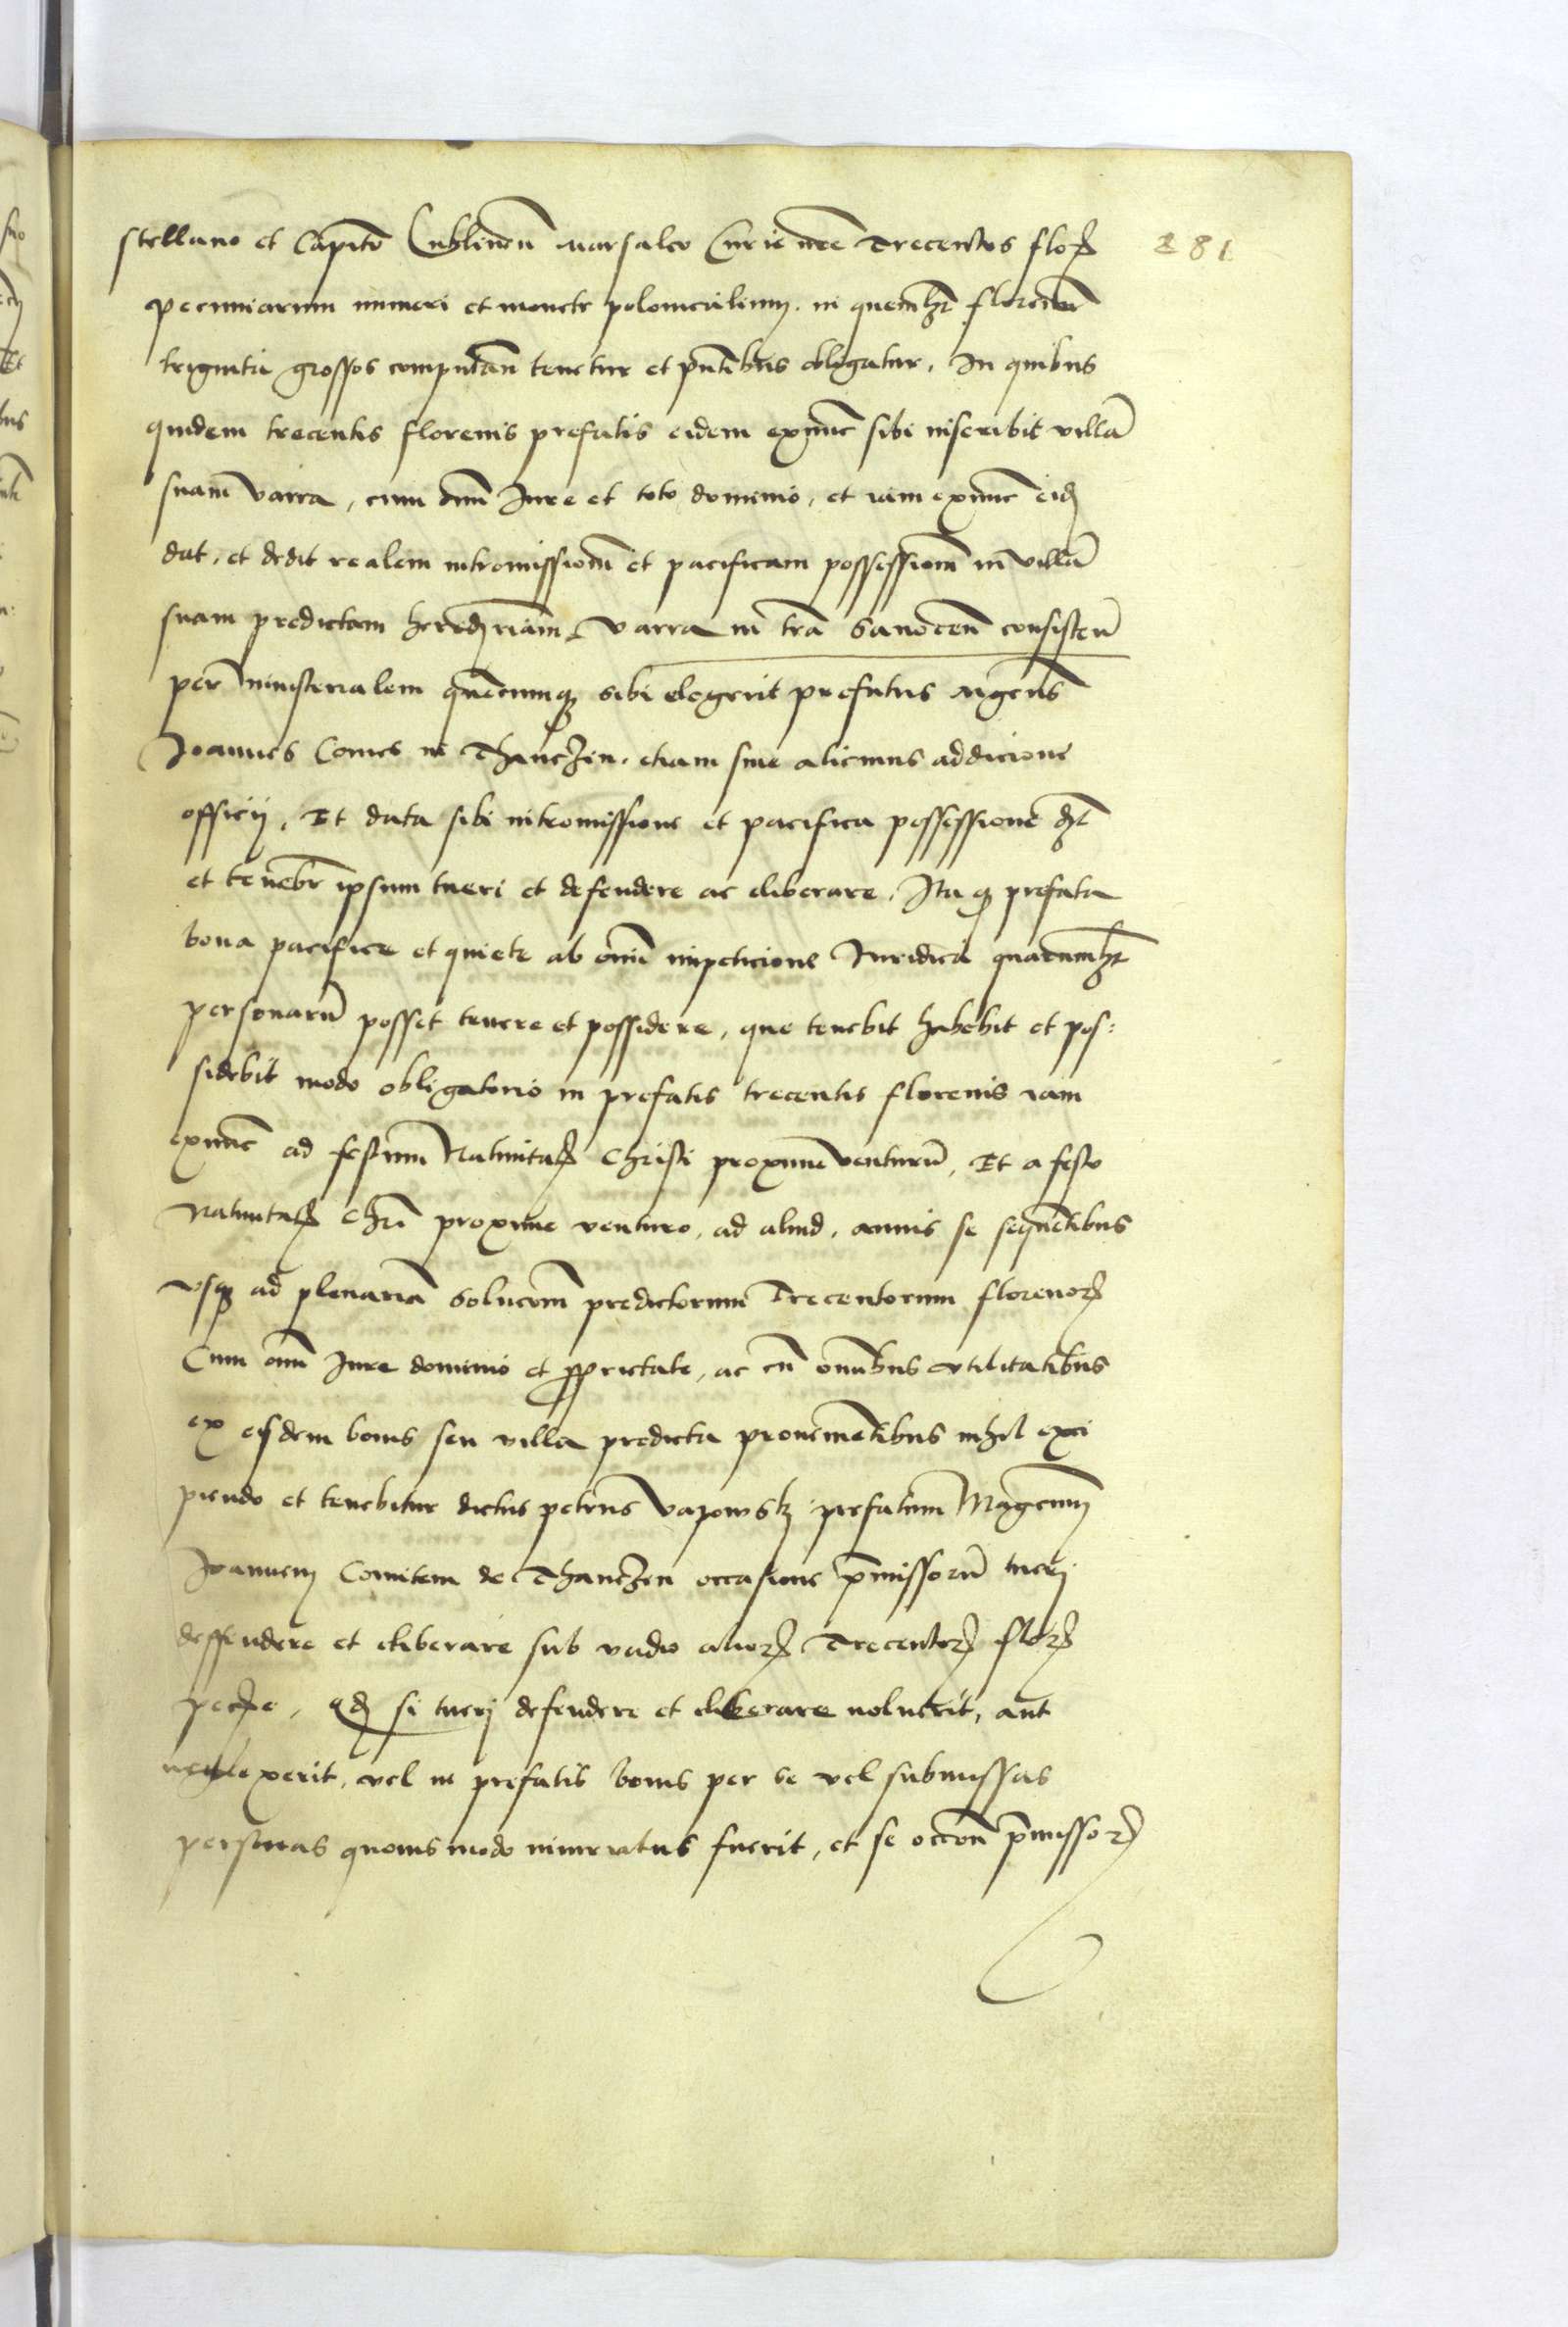 281
stellano et Capito Lublinen marsalco Curie nre Trecentos flor
pecuniarum numeri et monete polonicalium. in quemlibet florenum
triginta grossos computan tenetur et pntibus obligatur, In quibus
quidem trecentis florenis prefatis eidem exnunc sibi inscribit villa
suam Varra, cum omi Jure et toto dominio, et iam exnunc eid
dat, et dedit realem intromissiom et pacificam possessiom in villa
suam predictam hereditariam Varra in tra Sanocen consisten
per ministerialem quemcumq sibi elegerit prefatus Mgcus
Joannes Comes in Thanczin. etiam sine alicuius addicione
officij, Et data sibi intromissione et pacifica possessione debet
et tenebr ipsum tueri et defendere ac eliberare, Ita q prefata
bona pacifice et quiete ab omi impeticione Juridica quarumlibet
personaru posset tenere et possidere, que tenebit habebit et pos:
sidebit modo obligatorio in prefatis trecentis florenis iam
exnunc ad festum Natiuitatis Christi proxime venturu, Et a festo
Natiuitatis Chri proxime venturo, ad aliud, annis se sequentibus
vsq ad plenaria solucom predictorum Trecentorum florenor
Cum omi Jure dominio et pprietate, ac cu omibus vtilitatibus
ex eisdem bonis seu villa predicta prouenientibus nihil exci
piendo et tenebitur dictus petrus Vapowsky prefatum Magcum
Joannem Comitem de Thanczin occasione pmissoru tuerj
deffendere et eliberare sub vadio alior Trecentor flor
pecue, Qd si tuerj defendere et eliberare noluerit, aut
neglexerit, vel in prefatis bonis per se vel submissas
personas quouismodo iniuriatus fuerit, et se occoe pmissor